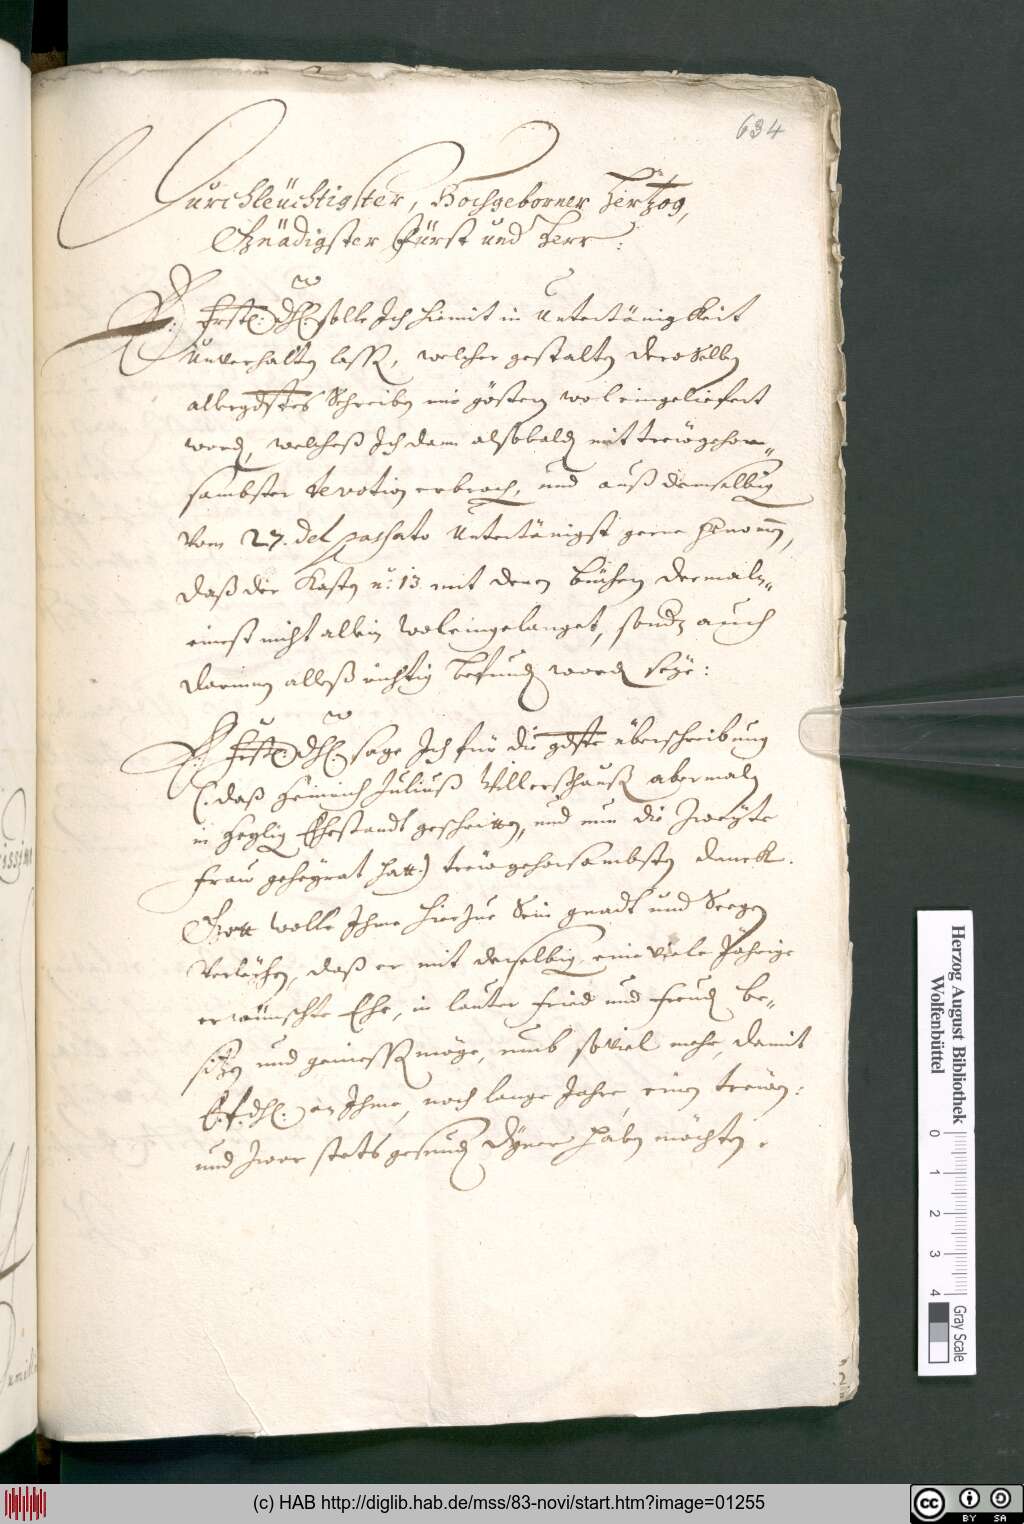 634
Durchleüchtigster, Hochgeborner Hertzog,
Gnädigster Fürst und Herr:
E: Frstl: dhl: solle Ich hiemit in Untertänigkeit
unverhalten lassen, welcher gestalten deroselben
allergdstes Schreiben mir gösteren wol eingeliefert
worden, welcheß Ich dann alsobalden mit trewgehor„
sambster devotion erbrach, und auß demselbigen
vom 27. del passato Untertänigst gerne vernommen,
daß der Kasten n: 13. mit denen büchern dermaln„
einest nicht allein wol eingelanget, sondern auch
darinnen alleß richtig befunden worden seye:
E: Frstl: dhl: sage Ich für die gdste überschreibung
(: daß Heinrich Juliuß Villerßhauß abermalen
in Heylig Ehestandt geschritten, und nun die Zweyte
Frau geheyrat hatt:) trewgehorsambsten danck.
Gott wolle Ihme hierzue Sein gnadt und Seegen
verleichen, daß er mit derselbigen eine viele Jährige
erwünschte Ehe, in lauter fried und freuden be„
sitzen und geniessen möge, umb soviel mehr, damit
E: F: dhl: an Ihme, noch lange Jahre, einen trewen:
und zwar stets gesunden Dyener haben möchten.
Herzog August Bibliothek
Wolfenbüttel
0 1 2 3 4
Gray Scale
(c) HAB http://diglib.hab.de/mss/83-novi/start.htm?image=01255
cc BY SA